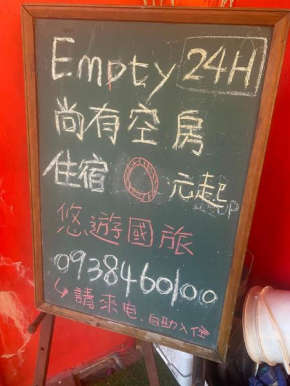 Empty 24H
尚有空房
住宿 0 元起
悠遊國旅
0938460100
↳請來电,自助入住